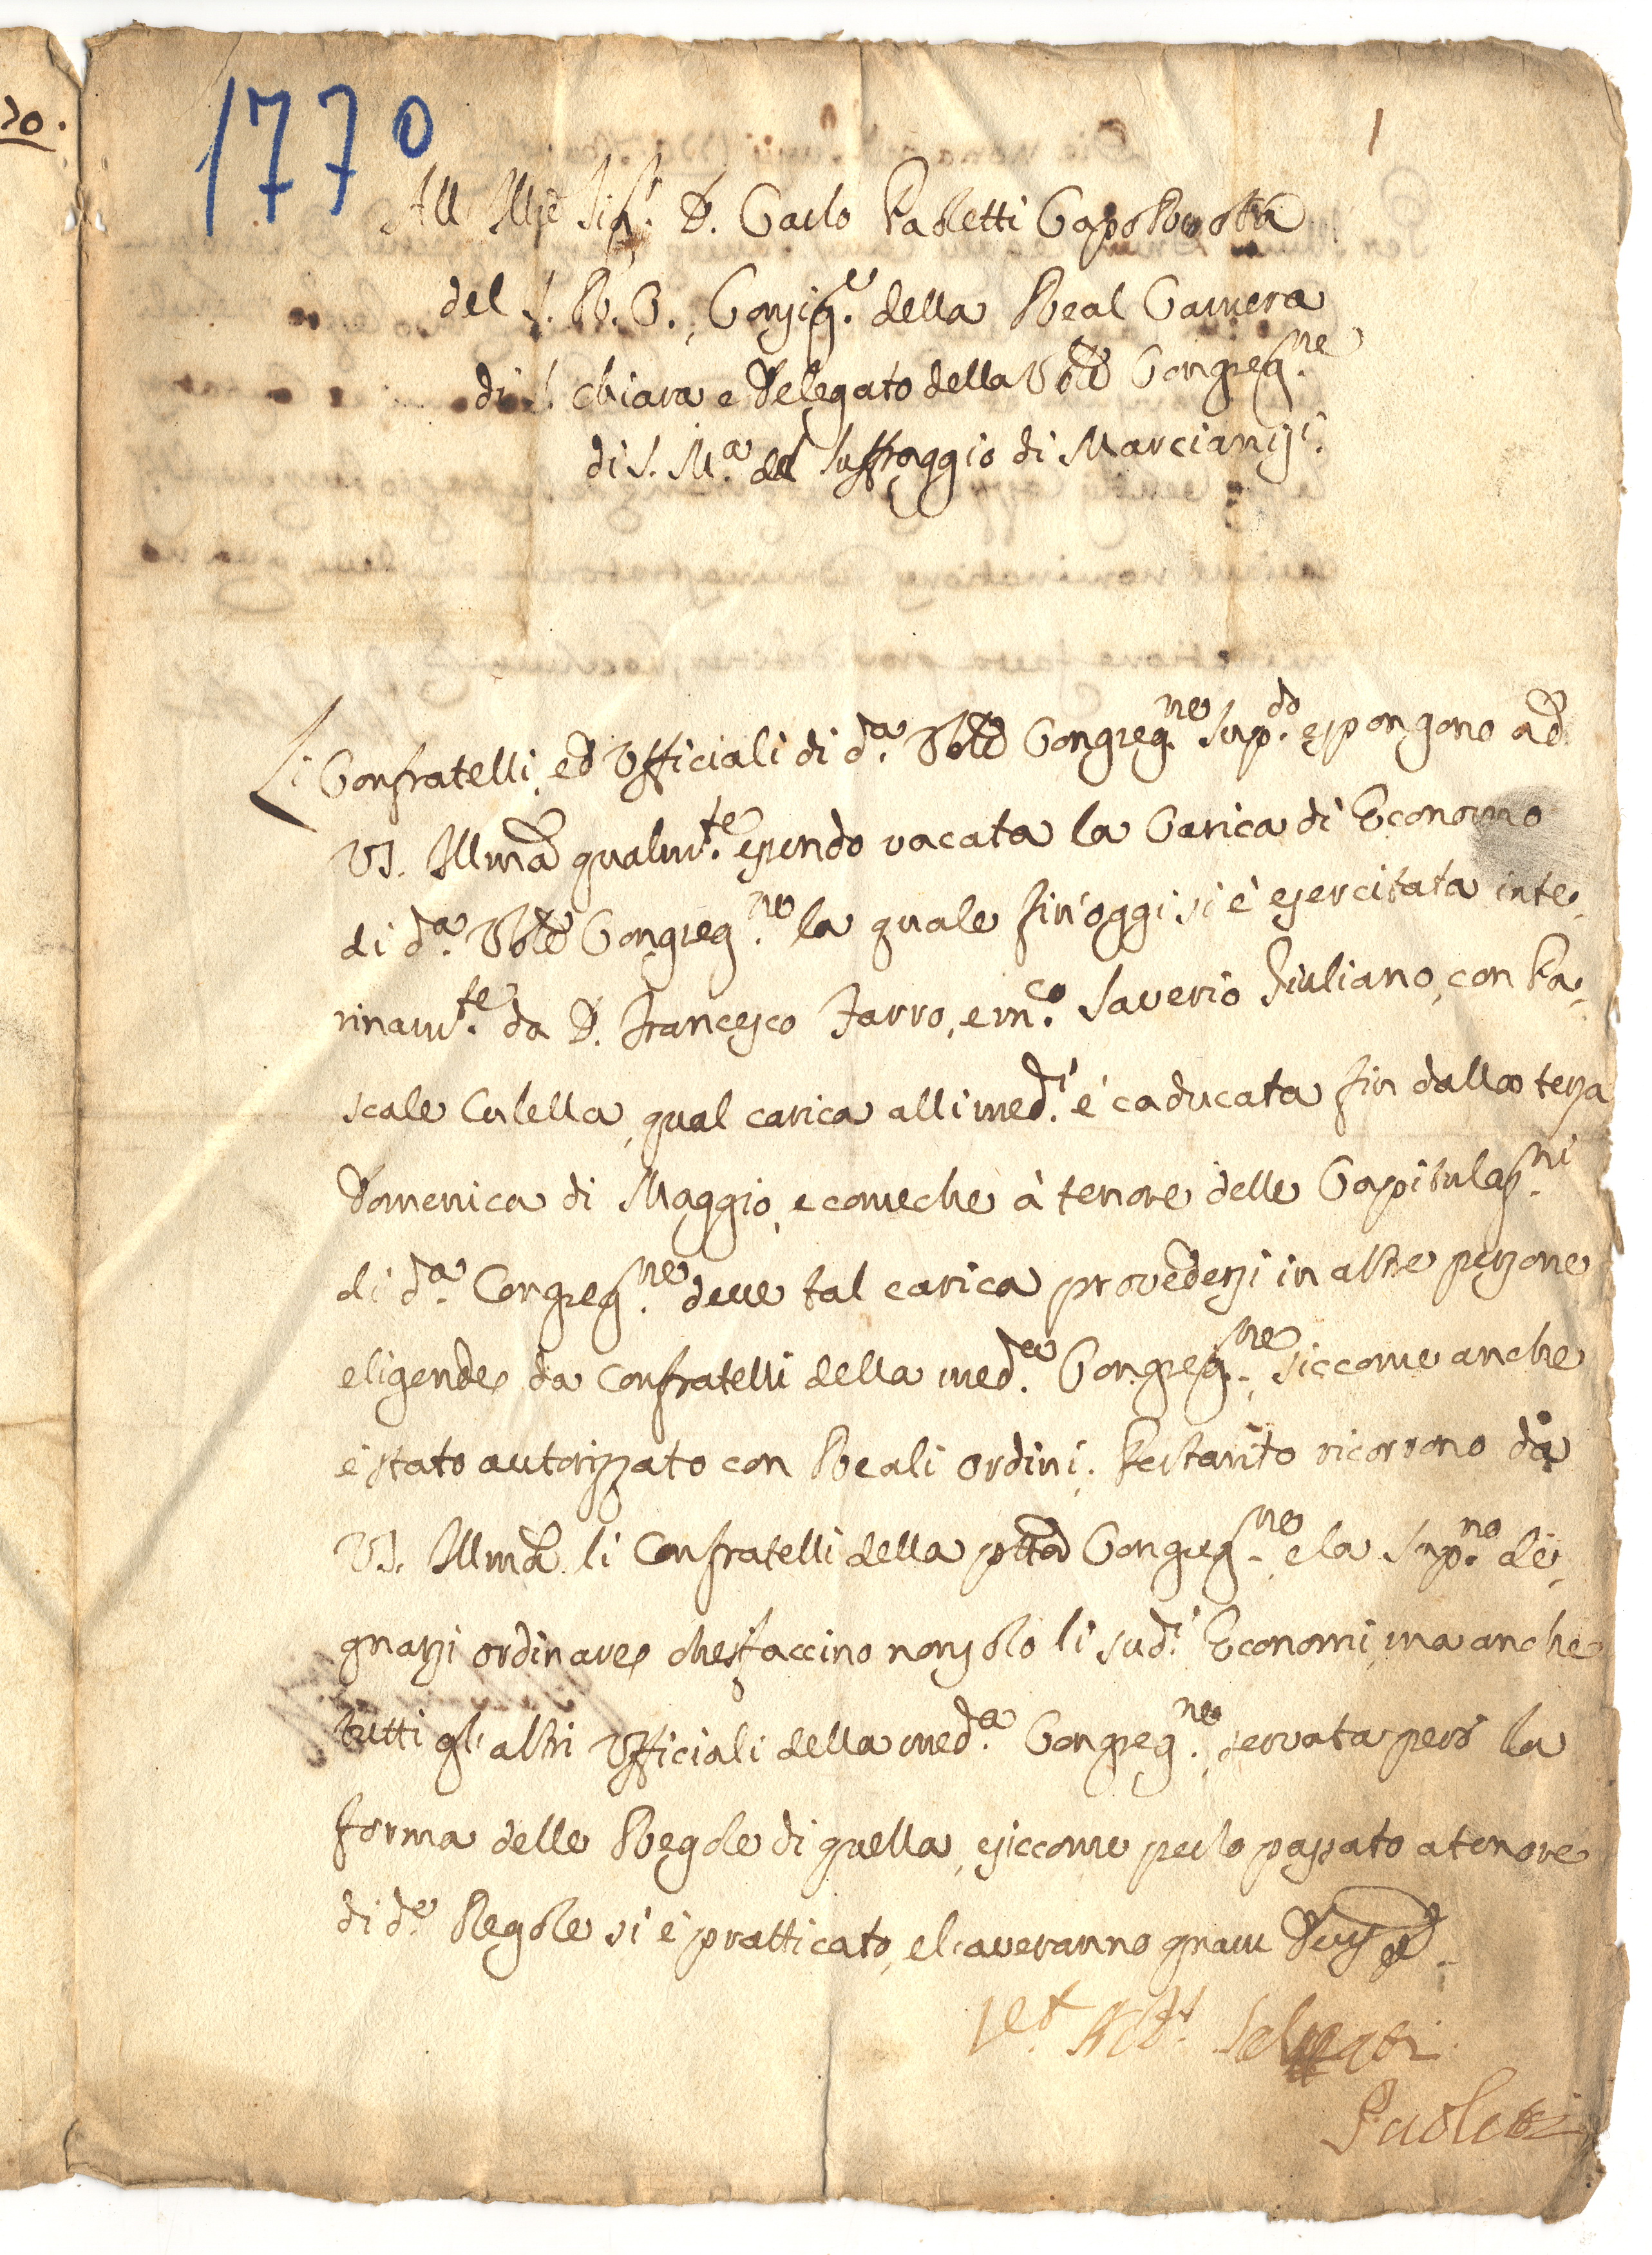 70.
1770
1
All' Ill.e Sig.r D. Carlo Paoletti Capo Ruota
del S. R. C., Consig.e della Real Camera
di S. Chiara e Delegato della Vble Congreg.ne
di S. M.a del Suffraggio di Marcianisi.
Li Confratelli, ed Ufficiali di d.a Vble Congreg.ne Sup.do espongono ad
VS. Illma qualm.te essendo vacata la Carica di Economo
di d.a Vble Congreg.ne la quale fin'oggi si è esercitata inte-
rinam.te da D. Francesco Farro, e m.co Saverio Giuliano, con Pa-
scale Culella, qual carica alli med.i è caducata fin dalla terza
Domenica di Maggio, e comeche à tenore delle Capitulaz.ni
di d.a Congreg.ne deve tal carica provedersi in altre persone
eligende da Confratelli della med.a Congreg.ne, siccome anche
è stato autorizzato con Reali ordini. Pertanto ricorrono da
VS. Illma li Confratelli della ptta Congreg.ne e la Sup.no de-
gnarsi ordinare che si faccino non solo li sud.i Economi, ma anche
tutti gl'altri Ufficiali della med.a Congreg.ne, servata però la
forma delle Regole di quella, e siccome per lo passato a tenore
di d.e Regole si è pratticato, e l'averanno à gram Deus
Paoletti